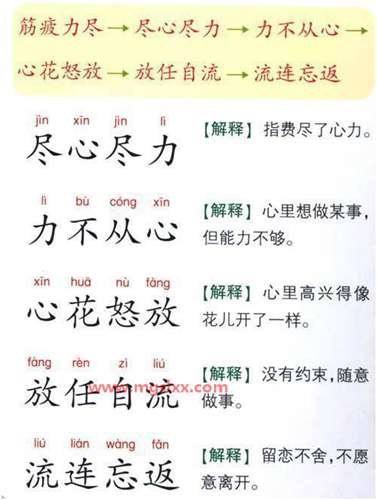 筋疲力尽→尽心尽力→力不从心→
心花怒放→放任自流→流连忘返
jìn xīn jìn lì
尽心尽力
【解释】指费尽了心力。
lì bù cóng xīn
力不从心
【解释】心里想做某事，
但能力不够。
xīn huā nù fàng
心花怒放
【解释】心里高兴得像
花儿开了一样。
fàng rèn zì liú
放任自流
【解释】没有约束，随意
做事。
www.mgzxx.com
liú lián wàng fǎn
流连忘返
【解释】留恋不舍，不愿
意离开。